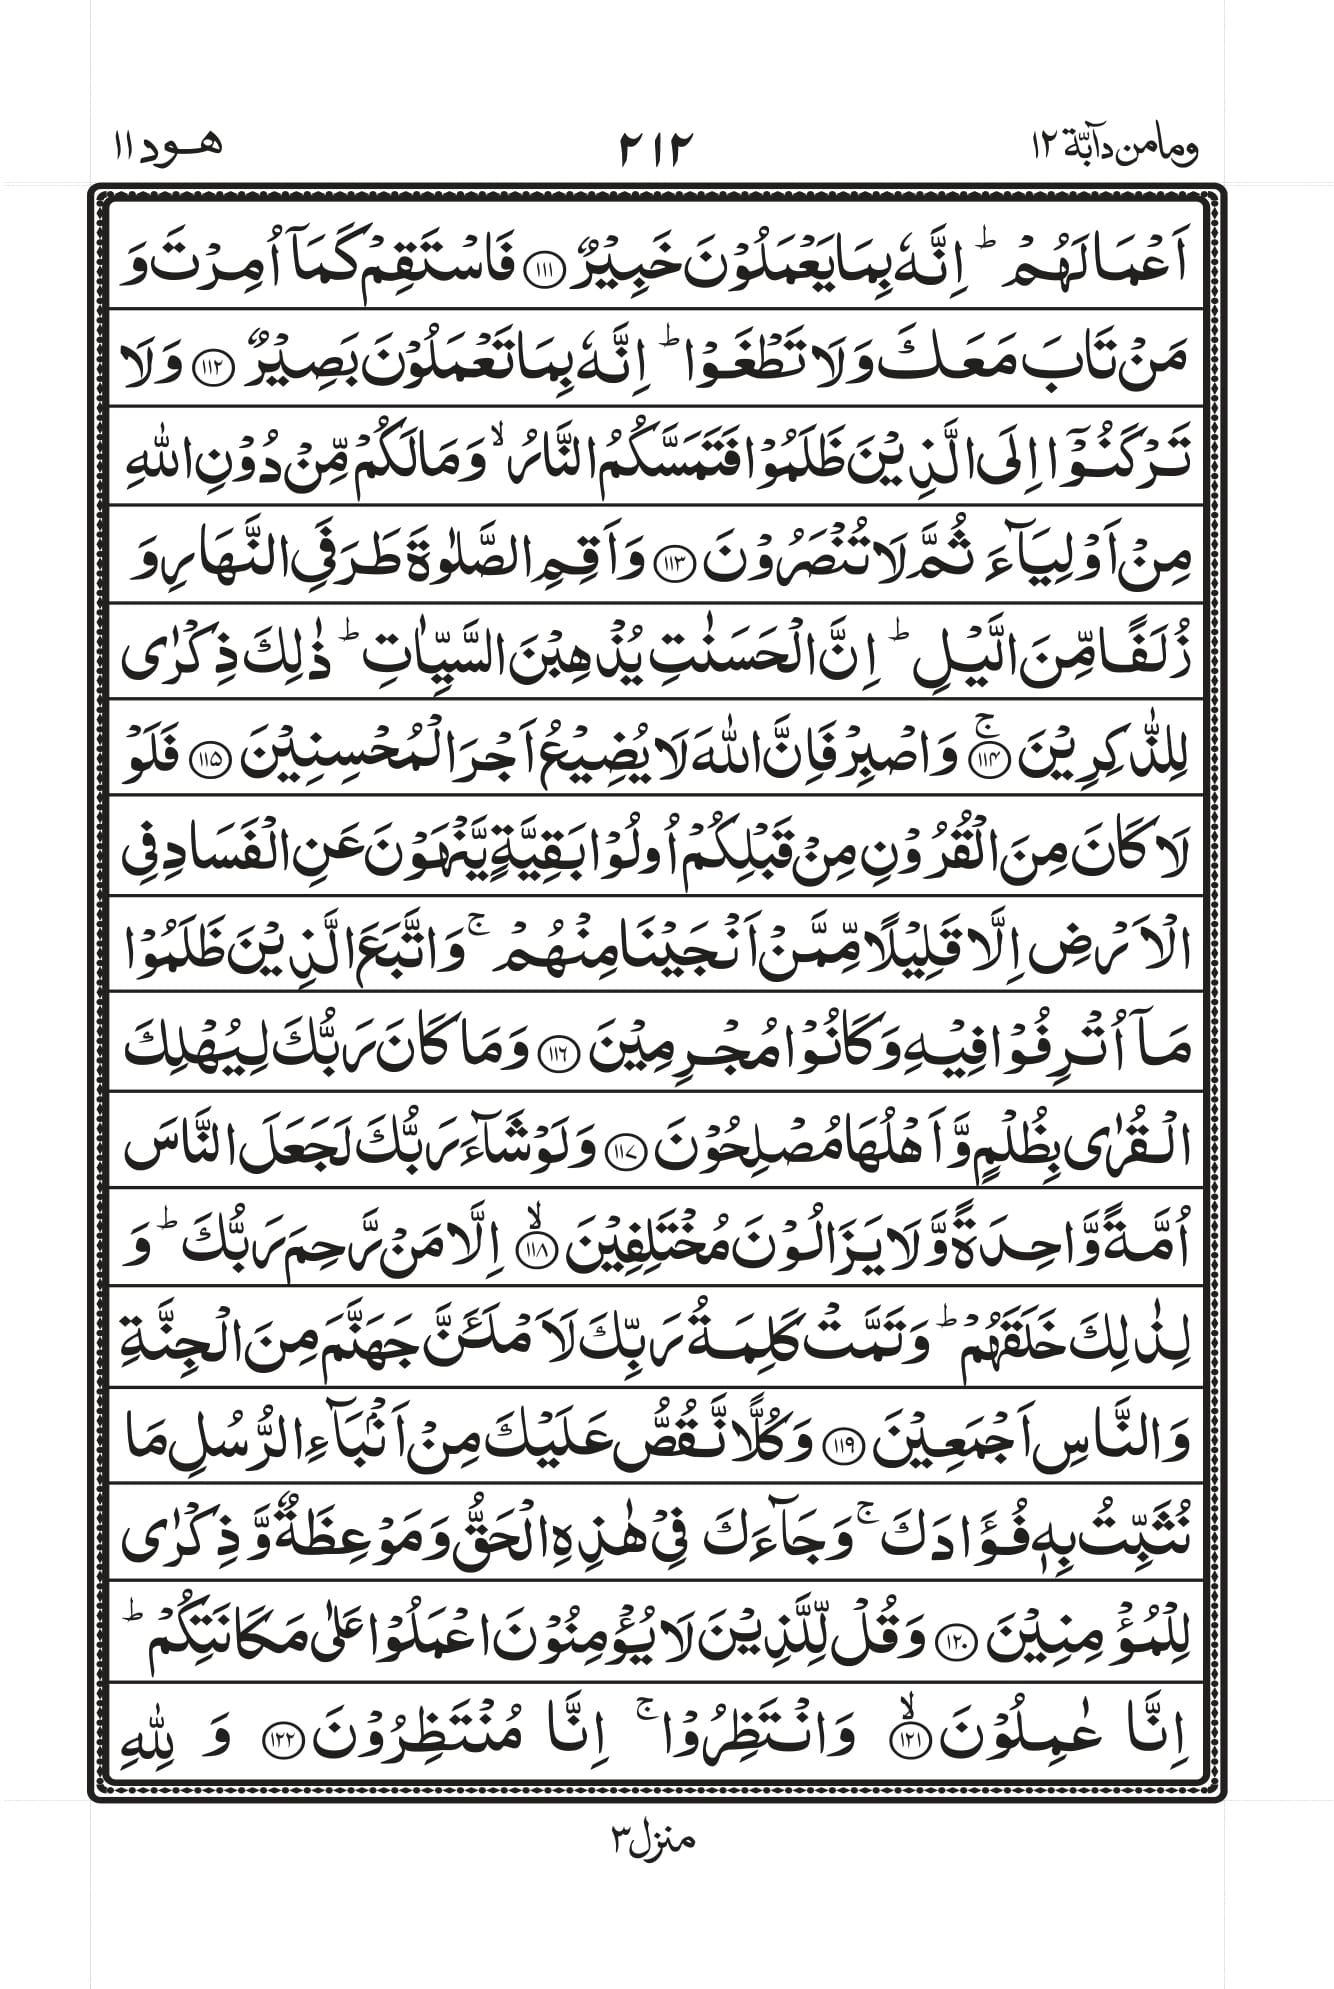 ومامن دآبة ۱۲
۲۱۲
هود ۱۱
اَعۡمَالَهُمۡ ؕ اِنَّهٗ بِمَا يَعۡمَلُوۡنَ خَبِيۡرٌ ﴿۱۱۱﴾ فَاسۡتَقِمۡ كَمَاۤ اُمِرۡتَ وَ
مَنۡ تَابَ مَعَكَ وَلَا تَطۡغَوۡا ؕ اِنَّهٗ بِمَا تَعۡمَلُوۡنَ بَصِيۡرٌ ﴿۱۱۲﴾ وَلَا
تَرۡكَنُوۡۤا اِلَى الَّذِيۡنَ ظَلَمُوۡا فَتَمَسَّكُمُ النَّارُ ۙ وَمَا لَكُمۡ مِّنۡ دُوۡنِ اللّٰهِ
مِنۡ اَوۡلِيَآءَ ثُمَّ لَا تُنۡصَرُوۡنَ ﴿۱۱۳﴾ وَاَقِمِ الصَّلٰوةَ طَرَفَىِ النَّهَارِ وَ
زُلَفًا مِّنَ الَّيۡلِ ؕ اِنَّ الۡحَسَنٰتِ يُذۡهِبۡنَ السَّيِّاٰتِ ؕ ذٰلِكَ ذِكۡرٰى
لِلذّٰكِرِيۡنَ ۚ﴿۱۱۴﴾ وَاصۡبِرۡ فَاِنَّ اللّٰهَ لَا يُضِيۡعُ اَجۡرَ الۡمُحۡسِنِيۡنَ ﴿۱۱۵﴾ فَلَوۡ
لَا كَانَ مِنَ الۡقُرُوۡنِ مِنۡ قَبۡلِكُمۡ اُولُوۡا بَقِيَّةٍ يَّنۡهَوۡنَ عَنِ الۡفَسَادِ فِى
الۡاَرۡضِ اِلَّا قَلِيۡلًا مِّمَّنۡ اَنۡجَيۡنَا مِنۡهُمۡ ۚ وَاتَّبَعَ الَّذِيۡنَ ظَلَمُوۡا
مَاۤ اُتۡرِفُوۡا فِيۡهِ وَكَانُوۡا مُجۡرِمِيۡنَ ﴿۱۱۶﴾ وَمَا كَانَ رَبُّكَ لِيُهۡلِكَ
الۡقُرٰى بِظُلۡمٍ وَّاَهۡلُهَا مُصۡلِحُوۡنَ ﴿۱۱۷﴾ وَلَوۡ شَآءَ رَبُّكَ لَجَعَلَ النَّاسَ
اُمَّةً وَّاحِدَةً وَّلَا يَزَالُوۡنَ مُخۡتَلِفِيۡنَ ۙ﴿۱۱۸﴾ اِلَّا مَنۡ رَّحِمَ رَبُّكَ ؕ وَ
لِذٰلِكَ خَلَقَهُمۡ ؕ وَتَمَّتۡ كَلِمَةُ رَبِّكَ لَاَمۡلَئَنَّ جَهَنَّمَ مِنَ الۡجِنَّةِ
وَالنَّاسِ اَجۡمَعِيۡنَ ﴿۱۱۹﴾ وَكُلًّا نَّقُصُّ عَلَيۡكَ مِنۡ اَنۡۢبَآءِ الرُّسُلِ مَا
نُثَبِّتُ بِهٖ فُؤَادَكَ ۚ وَجَآءَكَ فِىۡ هٰذِهِ الۡحَقُّ وَمَوۡعِظَةٌ وَّذِكۡرٰى
لِلۡمُؤۡمِنِيۡنَ ﴿۱۲۰﴾ وَقُلۡ لِّلَّذِيۡنَ لَا يُؤۡمِنُوۡنَ اعۡمَلُوۡا عَلٰى مَكَانَتِكُمۡ ؕ
اِنَّا عٰمِلُوۡنَ ۙ﴿۱۲۱﴾ وَانْتَظِرُوۡا ۚ اِنَّا مُنۡتَظِرُوۡنَ ﴿۱۲۲﴾ وَ لِلّٰهِ
منزل ۳